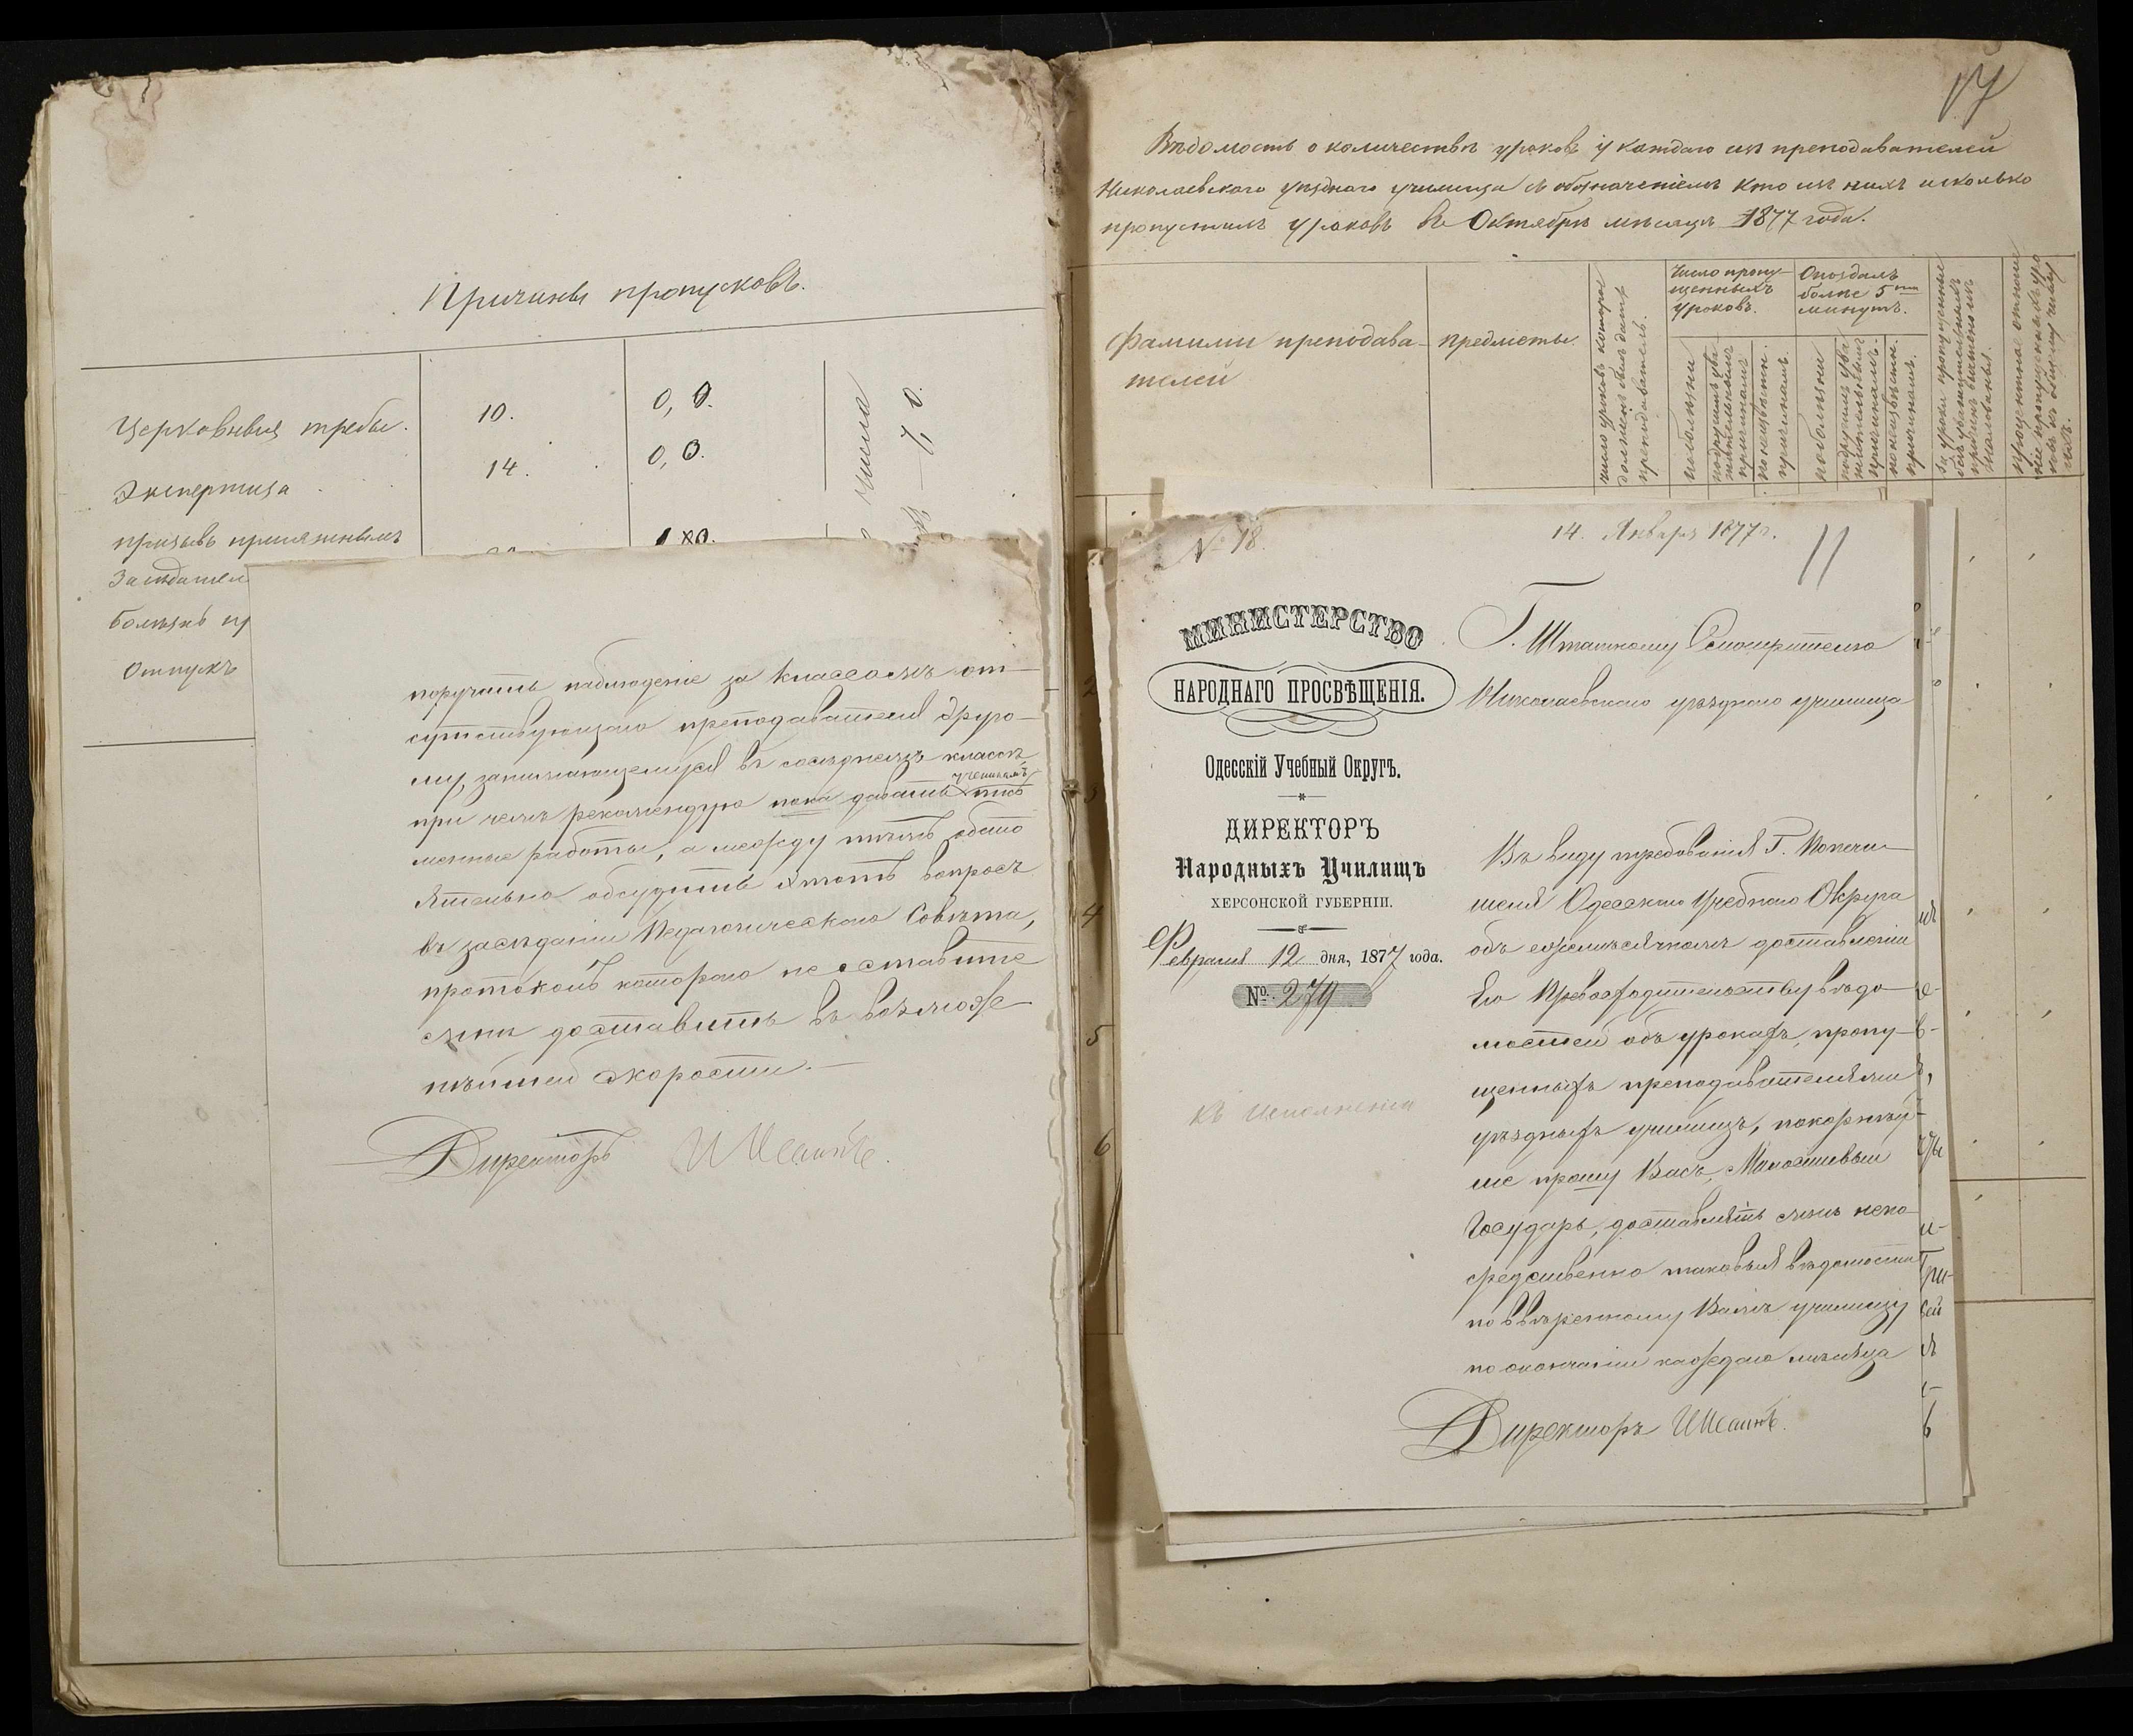 Причины пропусковъ.
Церковныя требы. 10. 0, 0.
Экспертиза 14. 0, 0.
призывъ присяжнымъ
Засѣдателе
болѣзнь пр
Отпускъ
Числа
поручать наблюденіе за классомъ от-
сутствующаго преподавателя друго-
му, занимающемуся въ сосѣднемъ классѣ,
при чемъ рекомендую пока давать ученикамъ пись
менные работы, а между тѣмъ обсто
ятельно обсудить этотъ вопросъ
въ засѣданіи Педагогическаго Совѣта,
протоколъ котораго не оставьте
мнѣ доставить въ возможно
нѣйшей скорости.
Директоръ
17
Вѣдомость о количествѣ уроковъ у каждаго изъ преподавателей
Николаевскаго уѣзднаго училища съ обозначеніемъ кто изъ нихъ и сколько
пропустилъ уроковъ въ Октябрѣ мѣсяцѣ 1877 года.
Фамиліи преподава-
телей
предметы.
число уроковъ которое
долженъ былъ дать
преподаватель.
Число пропу-
щенныхъ
уроковъ.
по болѣзни
по другимъ ува-
жительнымъ
причинамъ
по неизвѣстн.
причинамъ.
Опоздалъ
болѣе 5ти
минутъ.
по болѣзни
по другимъ ува-
жительнымъ
причинамъ.
по неизвѣстн.
причинамъ.
За уроки пропущенные
безъ уважительныхъ
причинъ вычтено изъ
жалованья.
Процентное отноше
ніе пропущенныхъ уро
ковъ къ общему числу
ихъ.
2
3
4
5
6
№ 18.
14. Января 1877г.
11
МИНИСТЕРСТВО
НАРОДНАГО ПРОСВѢЩЕНІЯ.
Одесскій Учебный Округъ.
ДИРЕКТОРЪ
Народныхъ Училищъ
ХЕРСОНСКОЙ ГУБЕРНІИ.
Февраля 12 дня, 1877 года.
№ 279
Къ исполненію
Г. Штатному Смотрителю
Николаевскаго уѣзднаго училища
Въ виду требованія Г. Попечи-
теля Одесскаго Учебнаго Округа
объ ежемѣсячномъ доставленіи
Его Превосходительству вѣдо-
мостей объ урокахъ, пропу-
щенныхъ преподавателями
уѣздныхъ училищъ, покорнѣй-
ше прошу Васъ, Милостивый
Государь, доставлять мнѣ непо-
средственно таковыя вѣдомости
по ввѣренному Вамъ училищу
по окончаніи каждаго мѣсяца
Директоръ